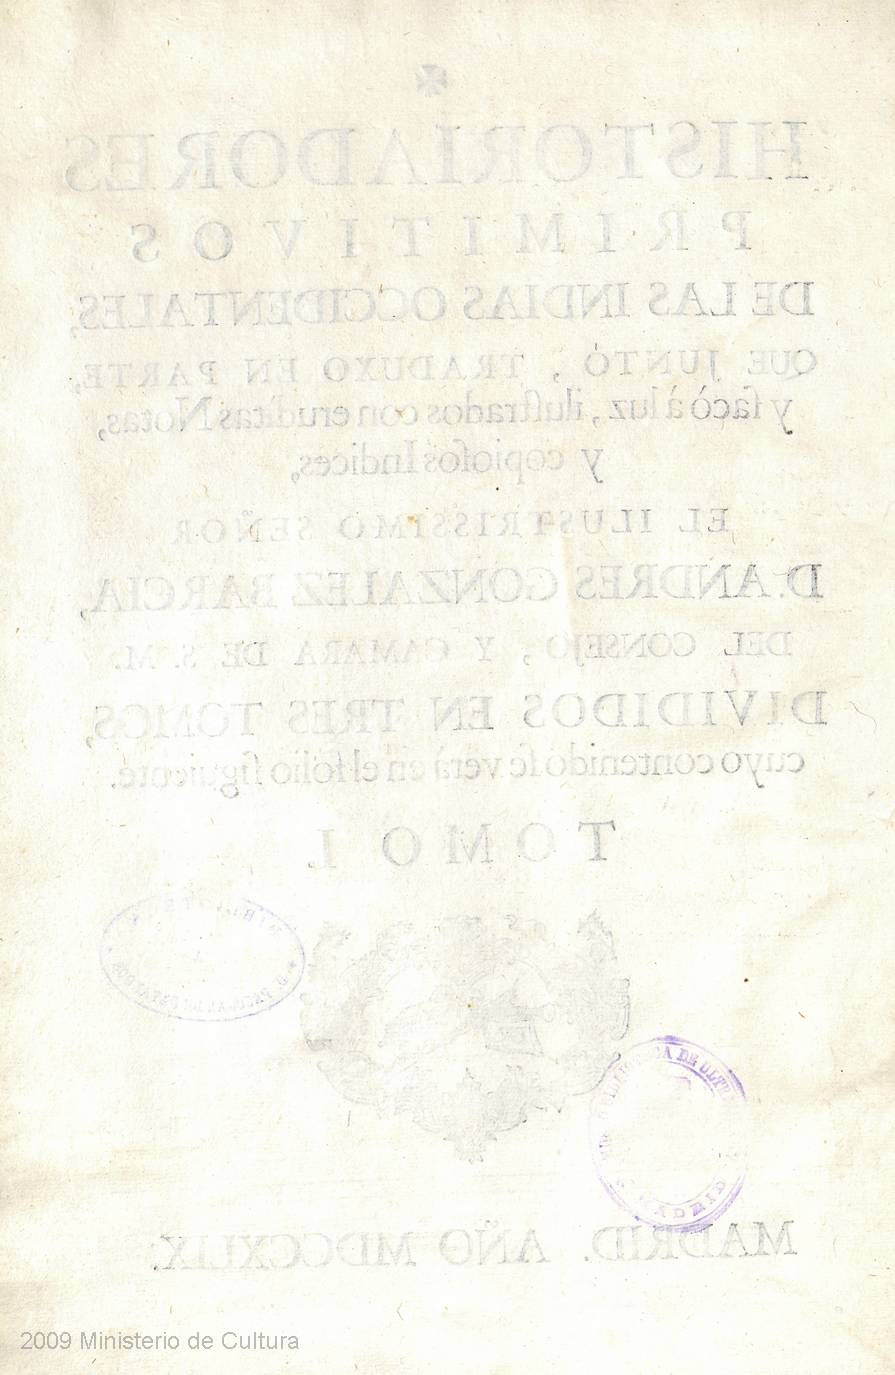 ✠
HISTORIADORES
PRIMITIVOS
DE LAS INDIAS OCCIDENTALES,
QUE JUNTÓ, TRADUXO EN PARTE,
y ſacò à luz, iluſtrados con eruditas Notas,
y copioſos Indices,
EL ILUSTRISSIMO SEÑOR
D. ANDRES GONZALEZ BARCIA,
DEL CONSEJO, Y CAMARA DE S. M.
DIVIDIDOS EN TRES TOMOS,
cuyo contenido ſe verà en el folio ſiguiente.
TOMO I.
DE ULTRA
MADRID
MADRID. AÑO MDCCXLIX.
2009 Ministerio de Cultura